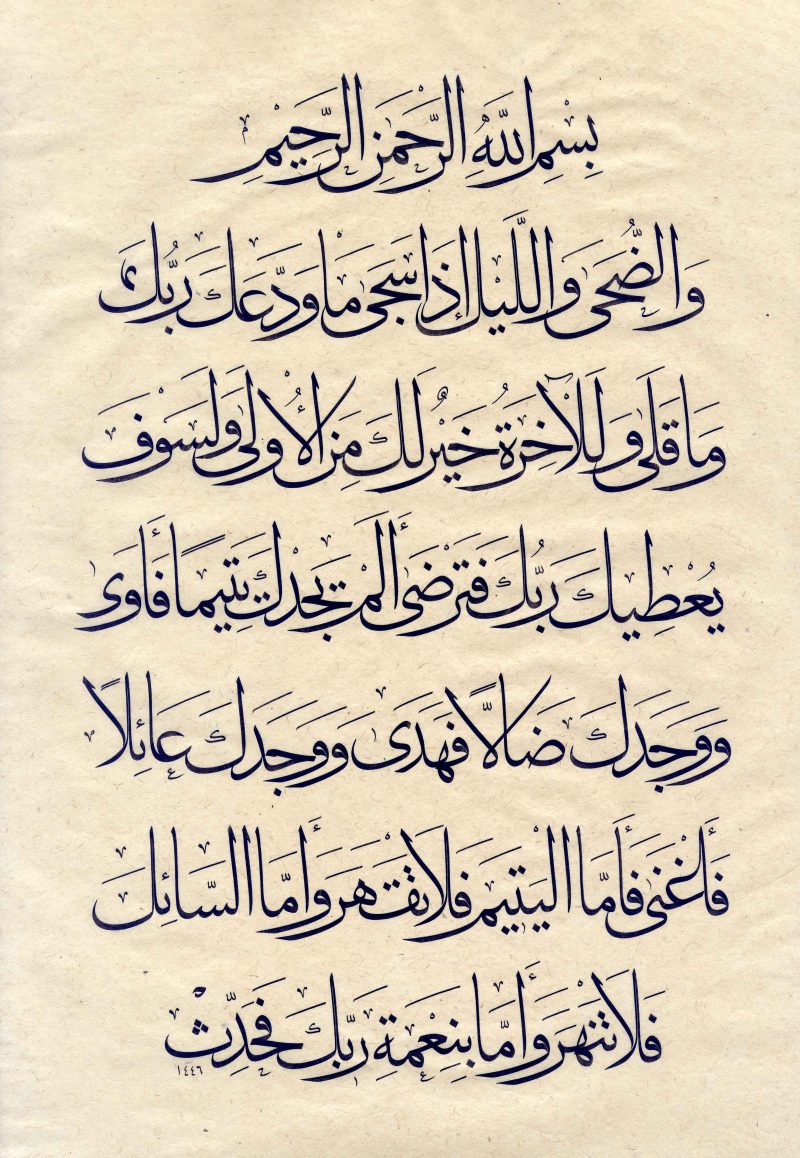 بِسْمِ اللَّهِ الرَّحْمَنِ الرَّحِيمِ
وَالضُّحَى وَاللَّيْلِ إِذَا سَجَى مَا وَدَّعَكَ رَبُّكَ
وَمَا قَلَى وَلَلْآخِرَةُ خَيْرٌ لَكَ مِنَ الْأُولَى وَلَسَوْفَ
يُعْطِيكَ رَبُّكَ فَتَرْضَى أَلَمْ يَجِدْكَ يَتِيمًا فَأَوَى
وَوَجَدَكَ ضَالًّا فَهَدَى وَوَجَدَكَ عَائِلًا
فَأَغْنَى فَأَمَّا الْيَتِيمَ فَلَا تَقْهَرْ وَأَمَّا السَّائِلَ
فَلَا تَنْهَرْ وَأَمَّا بِنِعْمَةِ رَبِّكَ فَحَدِّثْ
١٤٤٦